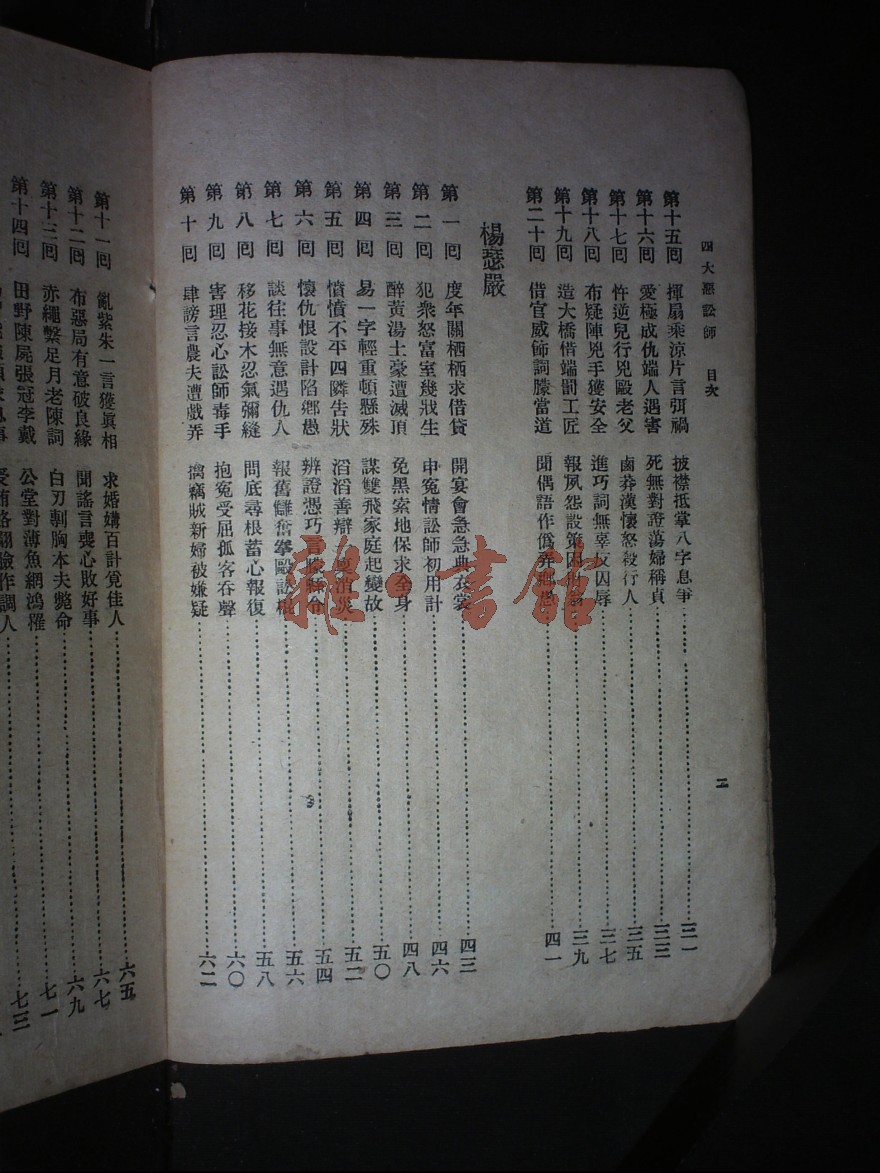 四大惡訟師　目次
二
第十五回　揮扇乘涼片言弭禍　披襟抵掌八字息爭……三一
第十六回　愛極成仇端人遇害　死無對證蕩婦稱貞……三三
第十七回　忤逆兒行兇毆老父　鹵莽漢懷怒殺行人……三五
第十八回　布疑陣兇手獲安全　進巧詞無辜反囚辱……三七
第十九回　造大橋惜端罰工匠　報夙怨設策困……三九
第二十回　借官威飾詞朦當道　聞偶語作僞弄鄉愚……四一
楊瑟嚴
第一回　度年關栖栖求借貸　開宴會急急典衣裳……四三
第二回　犯衆怒富室幾戕生　申寃情訟師初用計……四六
第三回　醉黃湯土豪遭滅頂　免黑索地保求全身……四八
第四回　易一字輕重頓懸殊　謀雙飛家庭起變故……五〇
第五回　憤憤不平四隣告狀　滔滔善辯消災……五二
第六回　懷仇恨設計陷鄉愚　辨證憑巧言……五四
第七回　談往事無意遇仇人　報舊讎奮拳毆訟棍……五六
第八回　移花接木忍氣彌縫　問底尋根蓄心報復……五八
第九回　害理忍心訟師毒手　抱寃受屈孤客吞聲……六〇
第十回　肆謗言農夫遭戲弄　擒竊賊新婦被嫌疑……六二
第十一回　亂紫朱一言獲眞相　求婚媾百計覓佳人……六五
第十二回　布惡局有意破良緣　聞謠言喪心敗好事……六七
第十三回　赤繩繫足月老陳詞　白刃剚胸本夫斃命……六九
第十四回　田野陳屍張冠李戴　公堂對薄魚網鴻罹……七一
作調人……七三
雜·書館